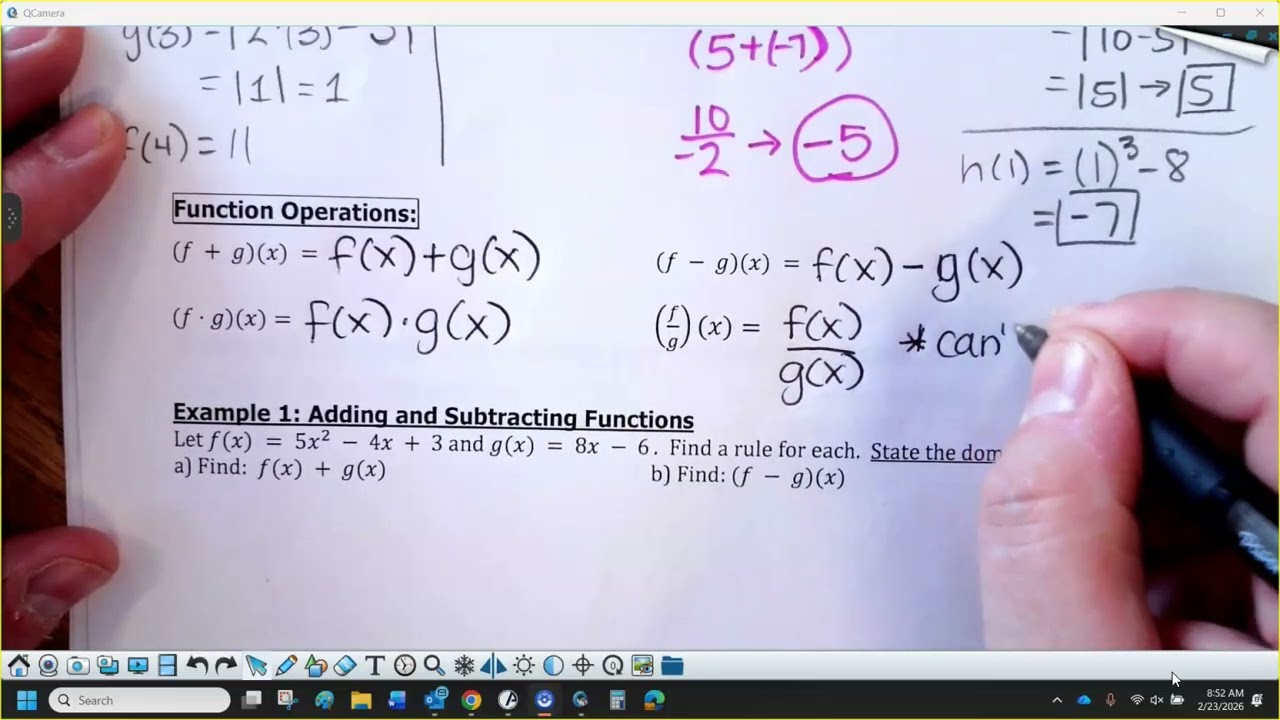 QCamera
= |1| = 1
f(4) = 11
(5+(-7))
10
-2 → -5
-|10-5|
= |5| → 5
h(1) = (1)³ - 8
= -7
Function Operations:
(f + g)(x) = f(x)+g(x)
(f − g)(x) = f(x) - g(x)
(f · g)(x) = f(x)·g(x)
(f/g)(x) = f(x)/g(x) * can'
Example 1: Adding and Subtracting Functions
Let f(x) = 5x² − 4x + 3 and g(x) = 8x − 6. Find a rule for each. State the dom
a) Find: f(x) + g(x)
b) Find: (f − g)(x)
Search
8:52 AM
2/23/2026